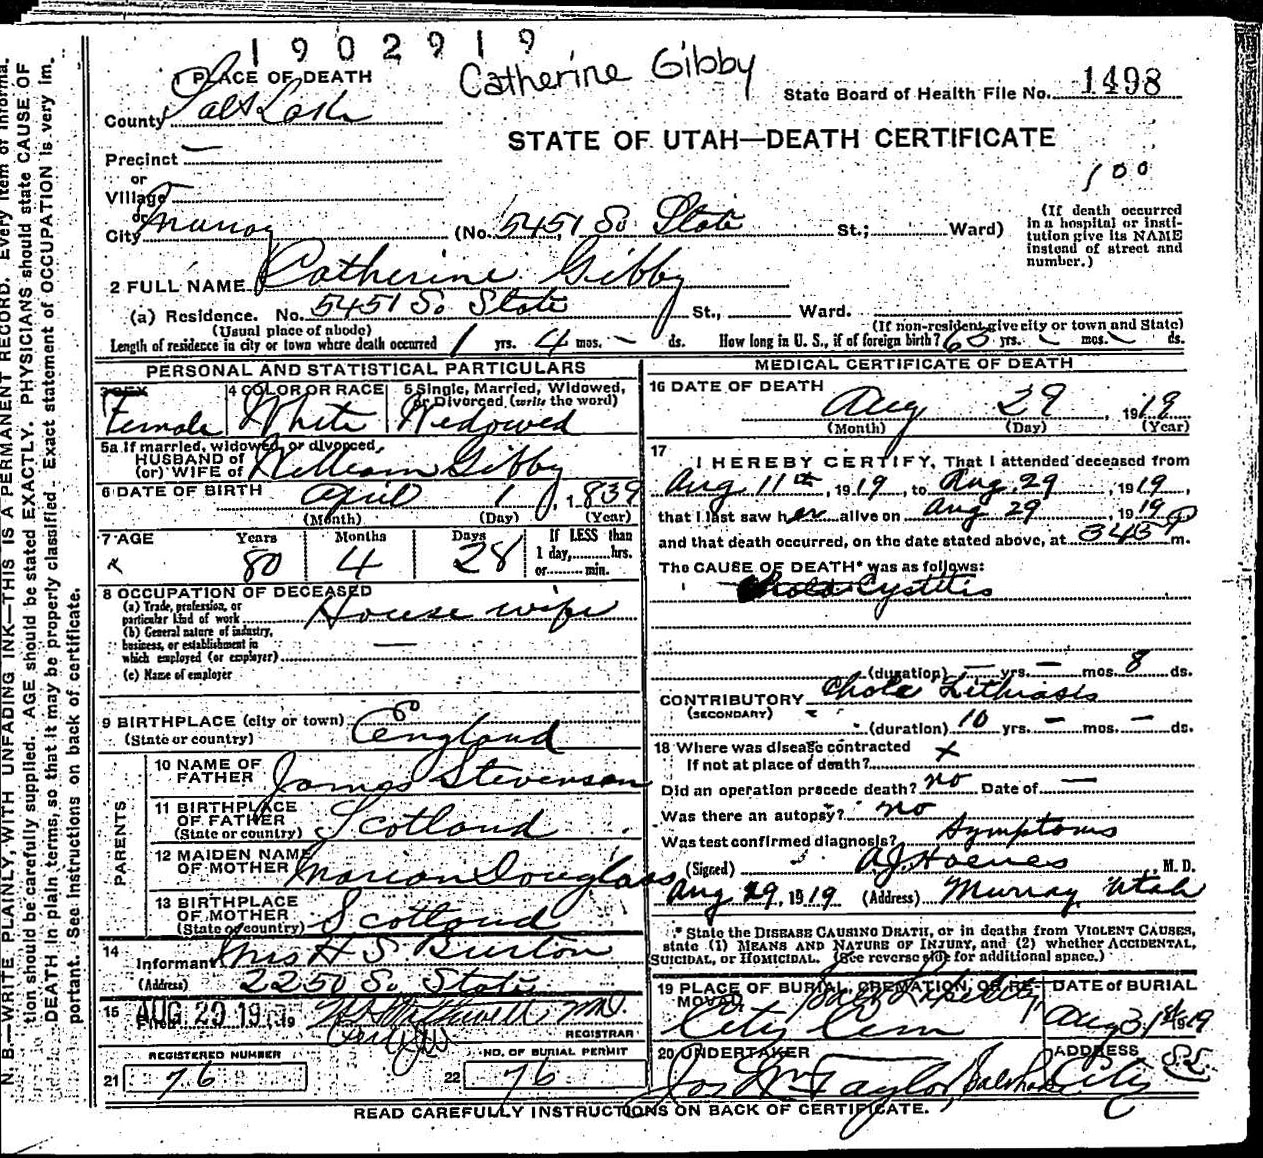 1902919
Catherine Gibby
1 PLACE OF DEATH
County Salt Lake
State Board of Health File No. 1498
STATE OF UTAH—DEATH CERTIFICATE
Precinct —
or
Village
or
City Murray (No. 5451 So State St.; Ward)
100
(If death occurred in a hospital or insti-
tution give its NAME
instead of street and
number.)
2 FULL NAME Catherine Gibby
(a) Residence. No. 5451 So State St., Ward.
(Usual place of abode) (If non-resident give city or town and State)
Length of residence in city or town where death occurred 1 yrs. 4 mos. – ds. How long in U. S., if of foreign birth? 63 yrs. – mos. – ds.
PERSONAL AND STATISTICAL PARTICULARS
3 SEX Female
4 COLOR OR RACE White
5 Single, Married, Widowed,
or Divorced (write the word)
Widowed
5a If married, widowed, or divorced,
HUSBAND of
(or) WIFE of William Gibby
6 DATE OF BIRTH April 1, 1839
(Month) (Day) (Year)
7 AGE Years Months Days If LESS than
1 day, hrs.
or min.
80 4 28
8 OCCUPATION OF DECEASED
(a) Trade, profession, or
particular kind of work House wife
(b) General nature of industry,
business, or establishment in
which employed (or employer) —
(c) Name of employer
9 BIRTHPLACE (city or town)
(State or country) England
PARENTS
10 NAME OF
FATHER James Stevenson
11 BIRTHPLACE
OF FATHER
(State or country) Scotland
12 MAIDEN NAME
OF MOTHER Marion Douglass
13 BIRTHPLACE
OF MOTHER
(State or country) Scotland
14 Informant Mrs H S Burton
(Address) 2250 So. State
15 Filed AUG 29 1919
REGISTRAR
REGISTERED NUMBER
21 76
NO. OF BURIAL PERMIT
22 76
MEDICAL CERTIFICATE OF DEATH
16 DATE OF DEATH
Aug 29, 1919
(Month) (Day) (Year)
17
I HEREBY CERTIFY, That I attended deceased from
Aug 11th, 1919, to Aug 29, 1919,
that I last saw her alive on Aug 29, 1919
and that death occurred, on the date stated above, at 345 P m.
The CAUSE OF DEATH* was as follows:
Chole Cystitis
(duration) — yrs. — mos. 8 ds.
CONTRIBUTORY Chole Lithiasis
(SECONDARY)
(duration) 10 yrs. — mos. — ds.
18 Where was disease contracted
If not at place of death? x
Did an operation precede death? no Date of —
Was there an autopsy? no
Was test confirmed diagnosis? Symptoms
(Signed) M. D.
Aug 29, 1919 (Address) Murray, Utah
* State the DISEASE CAUSING DEATH, or in deaths from VIOLENT CAUSES,
state (1) MEANS AND NATURE OF INJURY, and (2) whether ACCIDENTAL,
SUICIDAL, or HOMICIDAL. (See reverse side for additional space.)
19 PLACE OF BURIAL, CREMATION, OR RE-
MOVAL
City Cem
DATE of BURIAL
Aug 31st 1919
20 UNDERTAKER
Jos Wm Taylor, Salt Lake City
ADDRESS
READ CAREFULLY INSTRUCTIONS ON BACK OF CERTIFICATE.
N. B.—WRITE PLAINLY, WITH UNFADING INK—THIS IS A PERMANENT RECORD. Every item of informa-
tion should be carefully supplied. AGE should be stated EXACTLY. PHYSICIANS should state CAUSE OF
DEATH in plain terms, so that it may be properly classified. Exact statement of OCCUPATION is very im-
portant. See instructions on back of certificate.